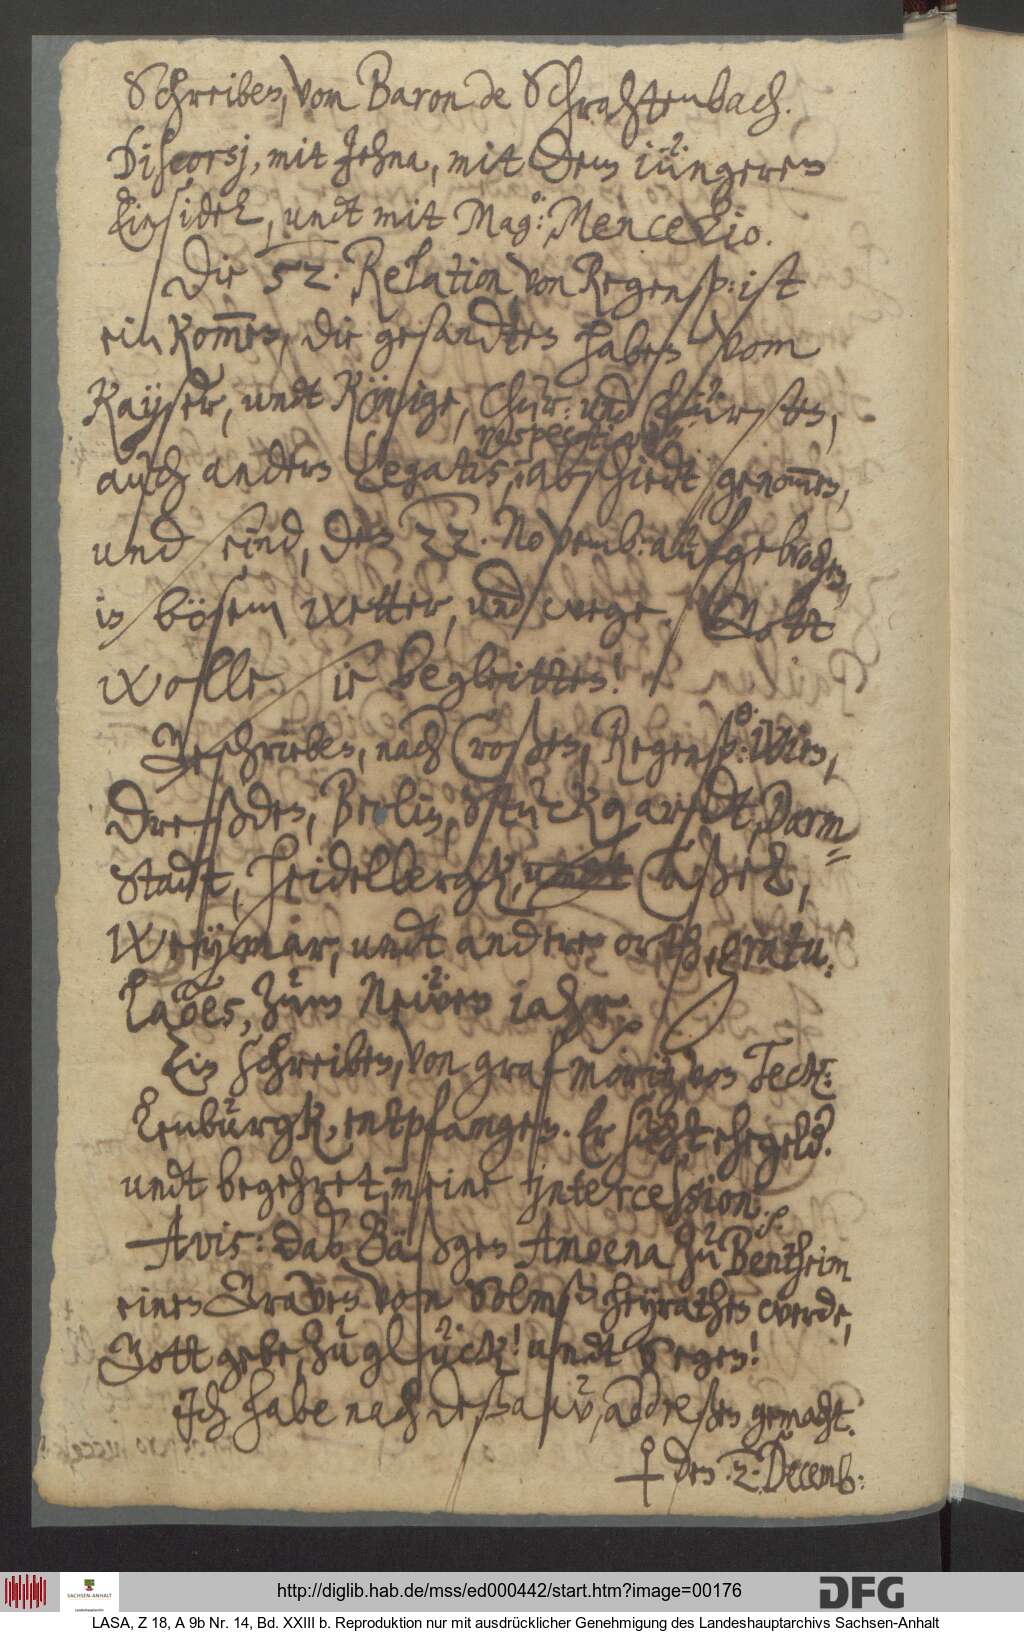 Schreiben, von Baron de Schrahtenbach.
Discorsj, mit Jehna, mit dem iüngeren
Einsidel, undt mit Mag: Mencelio.
Die 52. Relation von Regensp: ist
ein kom̅en, die gesandten haben vom
Kayser, undt Könige, Chur: und Fürsten,
respective
auch andern Legatis, abschiedt genom̅en,
und seind, den 22. Novemb: aufgebrochen,
in bösem wetter, und wege. Gott
wolle sie begleitten!
Geschrieben, nach Croßen, Regensp: Wien,
Dreßden, Berlin, Stuckgardt, Darm=
Stadt, Heidelbergk, undt Caßel,
Weymar, undt andere orth, gratu:
la͠oes, zum Neuen iahr.
Ein schreiben, von graf Moritz von Teck:
lenburgk, entpfangen. Er sucht ehegeld.
undt begehret, meine intercession.
Avis: daß Bäßgen Amoena zu Bentheim
einen Graven von Solmß heyrathen werde,
Gott gebe, zu glück! undt Segen!
Ich habe nach deßaw, addreßen gemacht.
den 2. Decemb:
http://diglib.hab.de/mss/ed000442/start.htm?image=00176
SACHSEN-ANHALT
DFG
LASA, Z 18, A 9b Nr. 14, Bd. XXIII b. Reproduktion nur mit ausdrücklicher Genehmigung des Landeshauptarchivs Sachsen-Anhalt